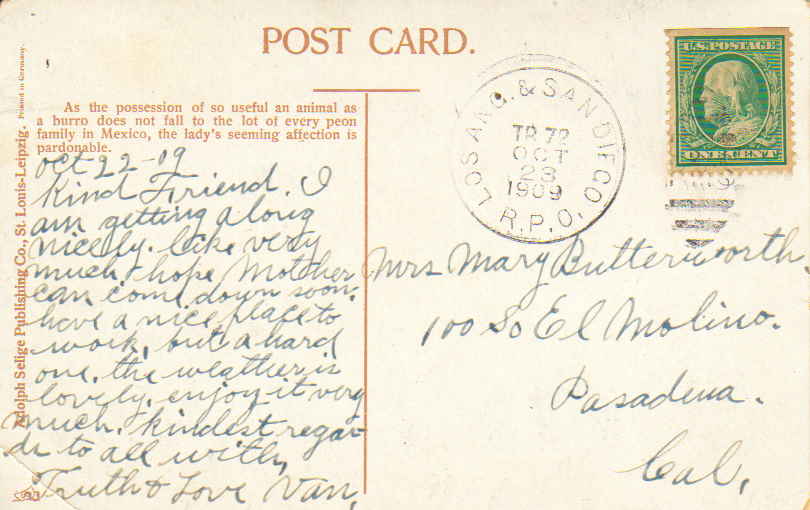 POST CARD.
As the possession of so useful an animal as
a burro does not fall to the lot of every peon
family in Mexico, the lady's seeming affection is
pardonable.
Adolph Selige Publishing Co., St. Louis-Leipzig. Printed in Germany.
Oct 22-09
Kind Friend. I
am getting along
nicely. like very
much, hope Mother
can come down soon.
have a nice place to
work, but a hard
one. the weather is
lovely. enjoy it very
much. kindest regar
ds to all with,
Truth & Love Van.
LOS ANG. & SAN DIEGO.
TR. 72
OCT
23
1909
R.P.O.
U.S. POSTAGE
ONE CENT
Mrs Mary Butterworth.
100 So El Molino.
Pasadena.
Cal,